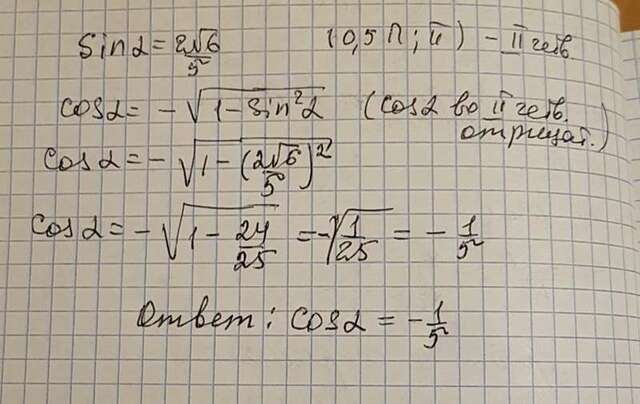 sin α = 2√6/5 (0,5π; π) - II четв.
cos α = -√(1 - sin²α) (cos α во II четв.
отрицат.)
cos α = -√(1 - (2√6/5)²)
cos α = -√(1 - 24/25) = -√(1/25) = -1/5
Ответ: cos α = -1/5